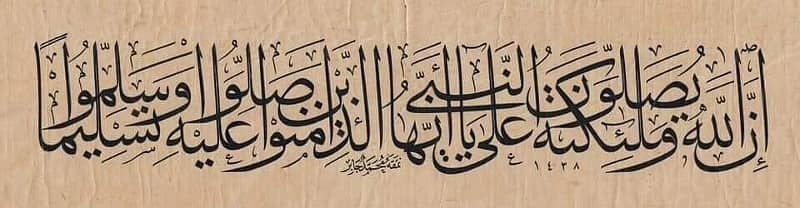 إِنَّ اللَّهَ وَمَلَٰئِكَتَهُ يُصَلُّونَ عَلَى النَّبِيِّ يَا أَيُّهَا الَّذِينَ آمَنُوا صَلُّوا عَلَيْهِ وَسَلِّمُوا تَسْلِيمًا
نمقه محمد جابر
١٤٣٨